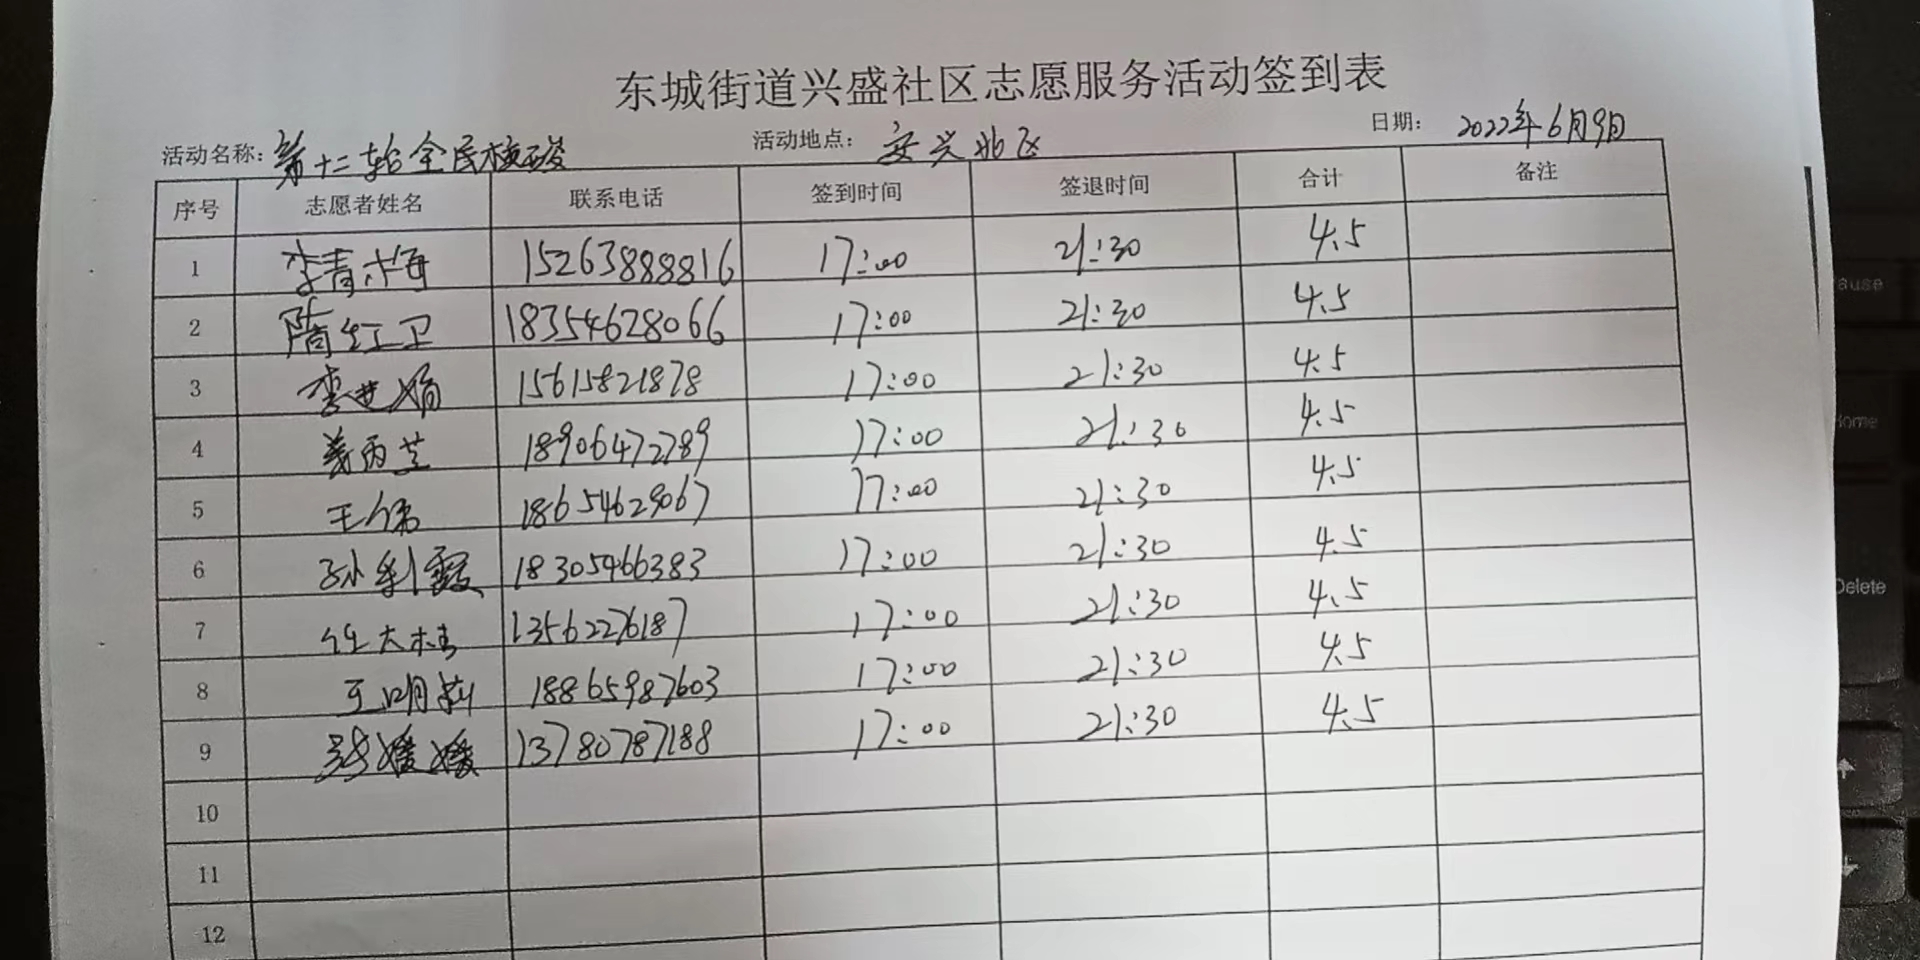 东城街道兴盛社区志愿服务活动签到表
活动名称：第十二轮全民核酸 活动地点：安兴北区 日期：2022年6月9日
序号 志愿者姓名 联系电话 签到时间 签退时间 合计 备注
1 李青梅 15263888816 17:00 21:30 4.5
2 隋红卫 18354628066 17:00 21:30 4.5
3 李世娟 15615821878 17:00 21:30 4.5
4 姜丙芝 18906472789 17:00 21:30 4.5
5 王伟 18654629067 17:00 21:30 4.5
6 孙利霞 18305466383 17:00 21:30 4.5
7 任大 13562276187 17:00 21:30 4.5
8 王明莉 18865987603 17:00 21:30 4.5
9 媛媛 13780787188 17:00 21:30 4.5
10
11
12
ause
Home
Delete